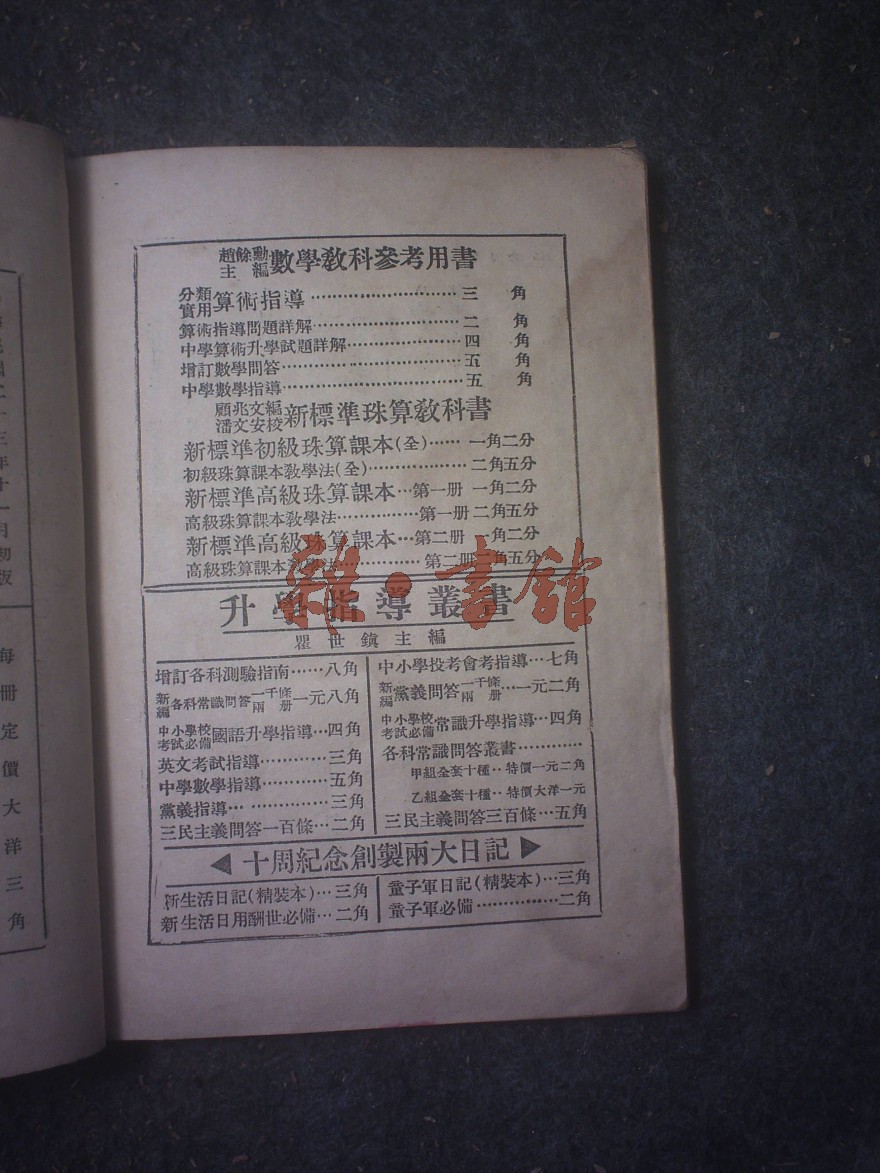 趙餘勳主編 數學教科參考用書
分類實用 算術指導……三角
算術指導問題詳解……二角
中學算術升學試題詳解……四角
增訂數學問答……五角
中學數學指導……五角
顧兆文編 潘文安校 新標準珠算教科書
新標準初級珠算課本(全)……一角二分
初級珠算課本教學法(全)……二角五分
新標準高級珠算課本…第一册 一角二分
高級珠算課本教學法……第一册 二角五分
新標準高級珠算課本…第二册 一角二分
高級珠算課本教學法……第二册 二角五分
雜·書館
升學指導叢書
瞿世鎮主編
增訂各科測驗指南……八角
新編 各科常識問答 一千條兩册 一元八角
中小學校考試必備 國語升學指導…四角
英文考試指導……三角
中學數學指導……五角
黨義指導……三角
三民主義問答一百條…二角
中小學投考會考指導…七角
新編 黨義問答 一千條兩册…一元二角
中小學校考試必備 常識升學指導…四角
各科常識問答叢書……
甲組全套十種‥特價一元二角
乙組全套十種‥特價大洋一元
三民主義問答三百條…五角
◀十周紀念創製兩大日記▶
新生活日記(精裝本)…三角
新生活日用酬世必備…二角
童子軍日記(精裝本)…三角
童子軍必備……二角
十三年十一月初版
每册定價大洋三角